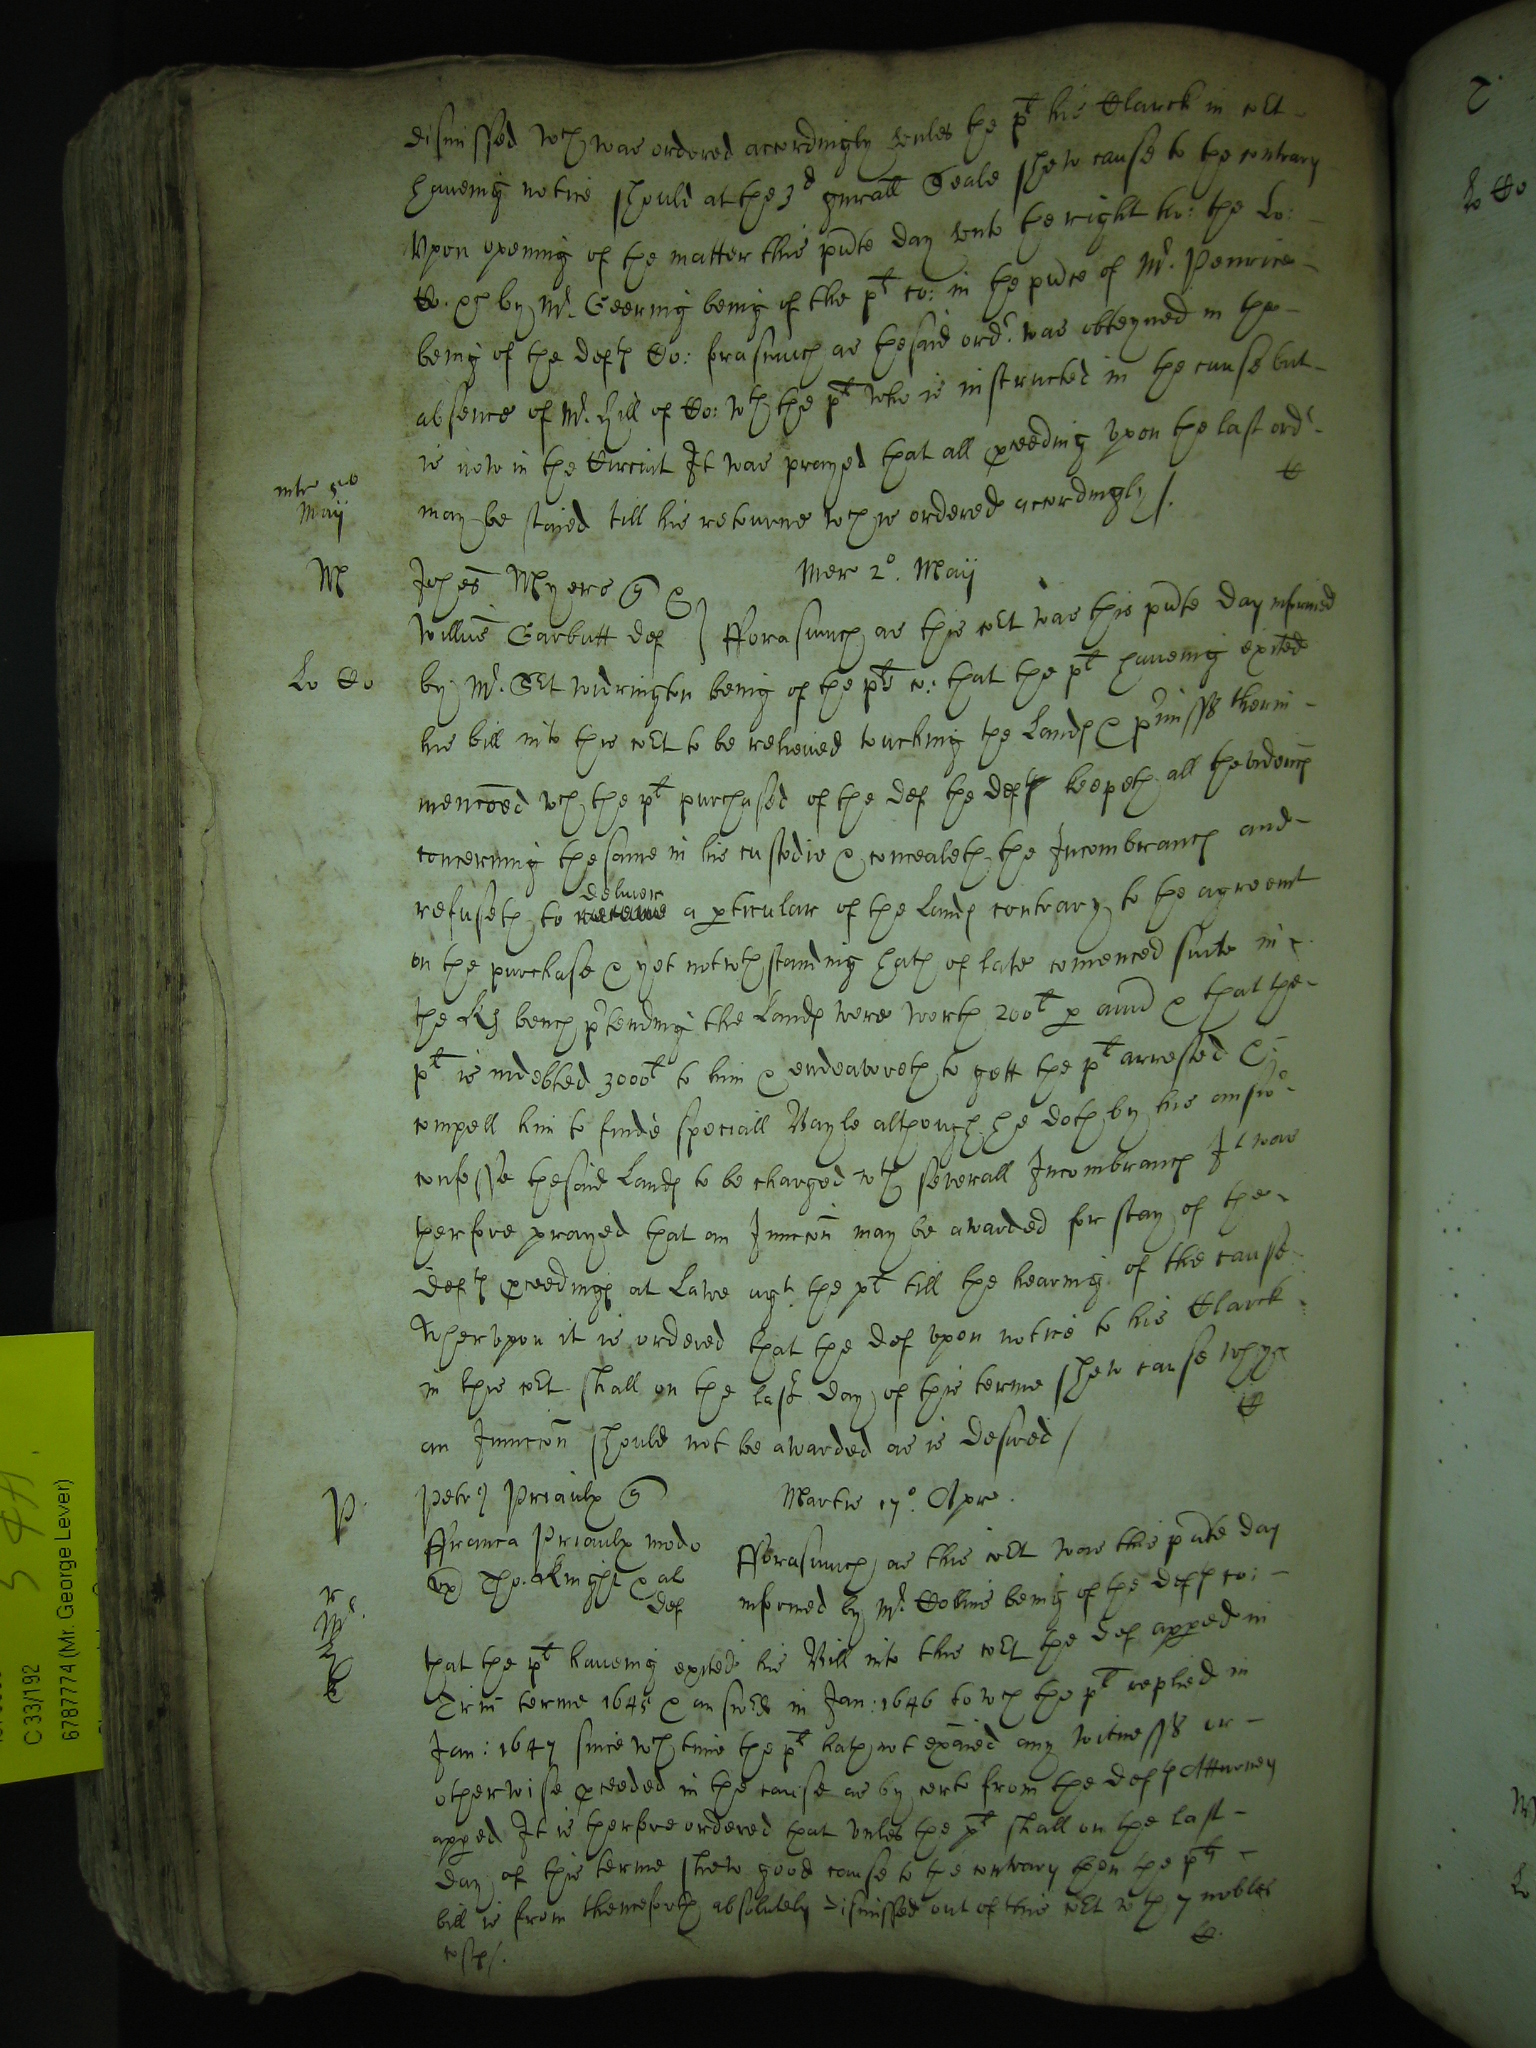 dismissed wch was ordered accordingly vnles the plt his Clarck in cort
haueing notice should at the 3d gnrall Seale shew cause to the contrary
Vpon opening of the matter this pnte day vnto the right ho: the Lo:
Co. by Mr. Geering being of the plt co: in the pnce of Mr. Penrice
being of the defts Co: forasmuch as the said ordr. was obteyned in the
absence of Mr. Hill of Co: wth the plt who is instructed in the cause but
is now in the Circuit It was prayed that all pceeding vpon the last ordr
may be staied till his retourne wch is ordered accordingly /.
intr 5to
Maij
M
Johes Myers q
Mer 2o. Maij
Willus Garbutt def } Fforasmuch as this cort was this pnte day informed
Lo Co
by Mr. Srt Widrington being of the plts co: that the plt haueing exited
his bill into this cort to be releiued touching the Lands & pmisses therin
menconed wch the plt purchased of the def the deft keepeth all the evidences
concerning the same in his custodie & concealeth the Incombrances and
deliver
refuseth to a pticular of the Lands contrary to the agreemt
on the purchase & yet notwthstanding hath of late comenced suite in
the Kgs bench ptending the Lands were worth 200l p annu & that the
plt is indebted 3000l to him & endeavoreth to gett the plt arrested &
compell him to finde speciall Bayle although he doth by his answere
confesse the said Lands to be charged wth severall Incombrances It was
therfore prayed that an Iniunccon may be awarded for stay of the
defts pceedings at Lawe agt. the plt till the hearing of the cause
Wherupon it is ordered that the def vpon notice to his Clarck
in this cort shall on the last day of this terme shew cause why
an Iniunccon should not be awarded as is desired /
P
Petrus Priaulx q
Martis 17o. Apr.
Ffranca Priaulx modo
ux Tho. Knight & al
def
Fforasmuch as this cort was this pnte day
informed by Mr. Collins being of the defts co:
that the plt haueing exited his Bill into this cort the def apped in
Trin terme 1645 & answered in Jan: 1646 to wch the plt replied in
Jan: 1647 since wch time the plt hath not exaied any witnesses or
otherwise pceeded in the cause as by certe from the defts Attorney
apped It is therfore ordered that vnles the plt shall on the last
day of this terme shew good cause to the contrary then the plts
bill is from thenceforth absolutely dismissed out of this cort wth 7 nobles
costs /.
C 33/192
6787774 (Mr. George Lever)